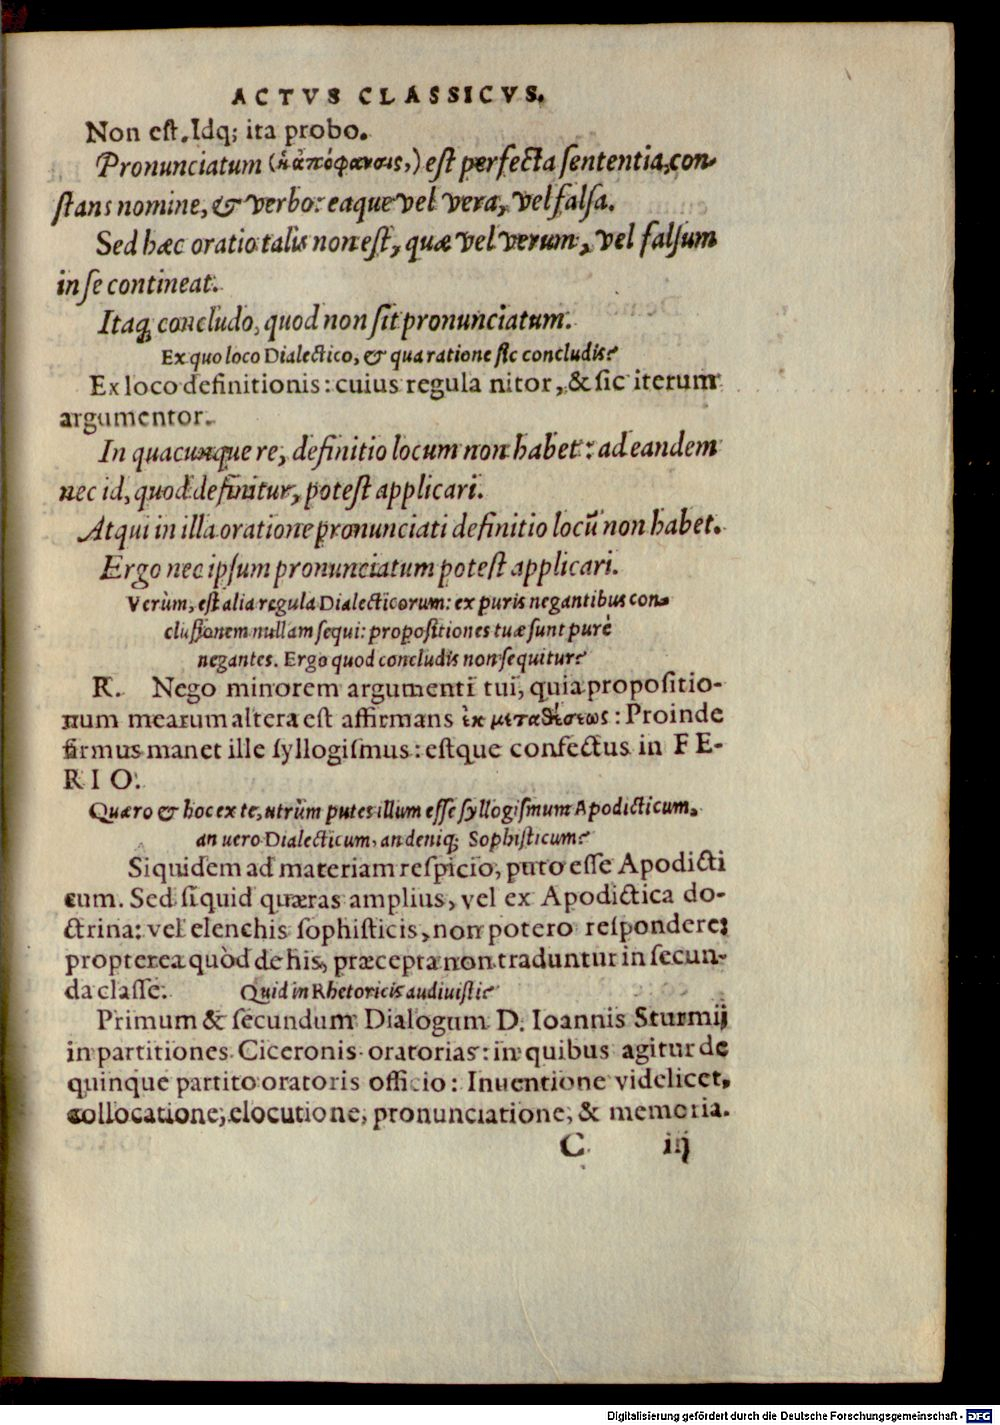 ACTVS CLASSICVS.
Non est. Idq; ita probo.
Pronunciatum (ἡ ἀπόφανσις,) est perfecta sententia, con-
stans nomine, & verbo: eaque vel vera, vel falsa.
Sed hæc oratio talis non est, quæ vel verum, vel falsum
in se contineat.
Itaq; concludo, quod non sit pronunciatum.
Ex quo loco Dialectico, & qua ratione sic concludis?
Ex loco definitionis: cuius regula nitor, & sic iterum
argumentor.
In quacunque re, definitio locum non habet: ad eandem
nec id, quod definitur, potest applicari.
Atqui in illa oratione pronunciati definitio locũ non habet.
Ergo nec ipsum pronunciatum potest applicari.
Verùm, est alia regula Dialecticorum: ex puris negantibus con-
clusionem nullam sequi: propositiones tuæ sunt purè
negantes. Ergo quod concludis non sequitur?
R. Nego minorem argumenti tui, quia propositio-
num mearum altera est affirmans ἐκ μεταθέσεως: Proinde
firmus manet ille syllogismus: estque confectus in FE-
RIO.
Quæro & hoc ex te, utrùm putes illum esse syllogismum Apodicticum,
an uero Dialecticum, an deniq; Sophisticum?
Siquidem ad materiam respicio, puto esse Apodicti
cum. Sed siquid quæras amplius, vel ex Apodictica do-
ctrina: vel elenchis sophisticis, non potero respondere:
propterea quòd de his, præcepta non traduntur in secun-
da classe. Quid in Rhetoricis audiuisti?
Primum & secundum Dialogum D. Ioannis Sturmij
in partitiones Ciceronis oratorias: in quibus agitur de
quinque partito oratoris officio: Inuentione videlicet,
collocatione, elocutione, pronunciatione, & memoria.
C iij
Digitalisierung gefördert durch die Deutsche Forschungsgemeinschaft - DFG